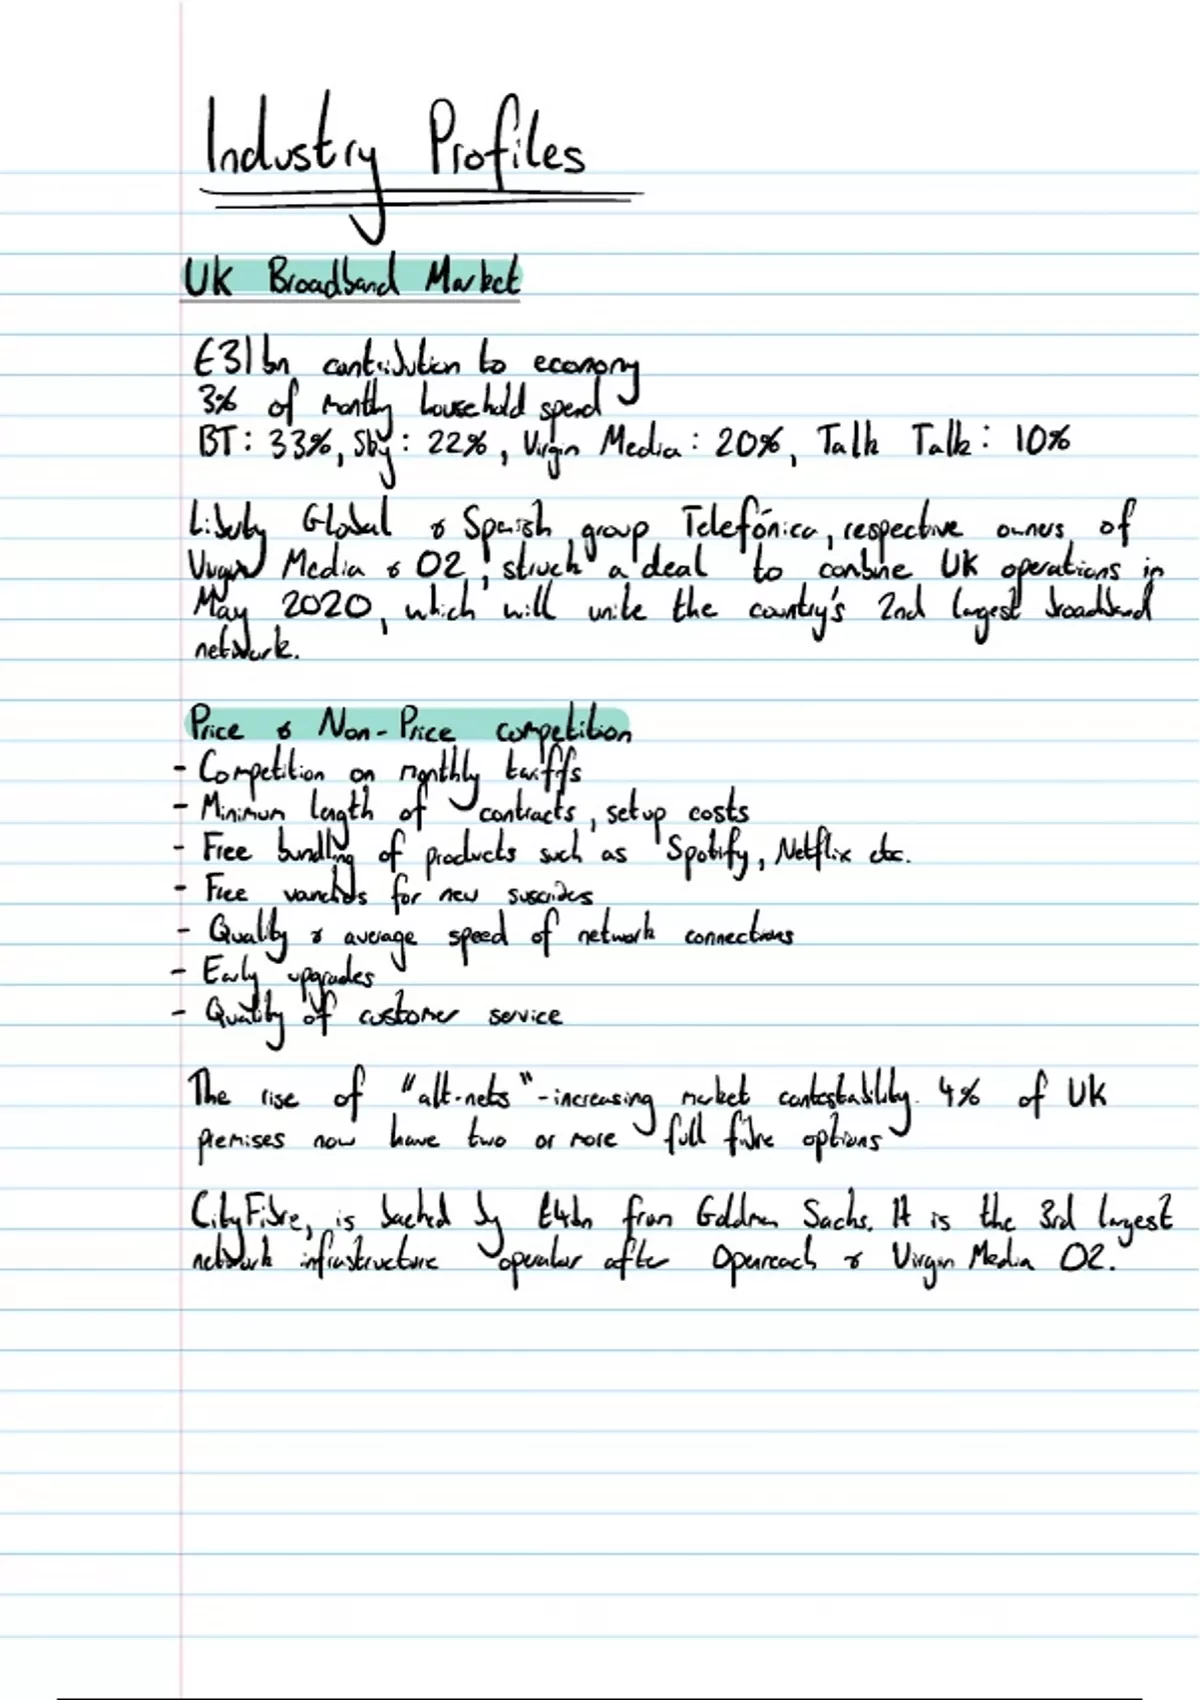 Industry Profiles
UK Broadband Market
£31bn contribution to economy
3% of monthly household spend
BT: 33%, Sky: 22%, Virgin Media: 20%, Talk Talk: 10%
Liberty Global & Spanish group Telefónica, respective owners of
Virgin Media & O2, struck a deal to combine UK operations in
May 2020, which will unite the country's 2nd largest broadband
network.
Price & Non-Price competition
- Competition on monthly tariffs
- Minimum length of contracts, setup costs
- Free bundling of products such as Spotify, Netflix etc.
- Free vouchers for new suscribers
- Quality & average speed of network connections
- Early upgrades
- Quality of customer service
The rise of "alt-nets" - increasing market contestability. 4% of UK
premises now have two or more full fibre options
CityFibre, is backed by £4bn from Goldman Sachs. It is the 3rd largest
network infrastructure operator after Openreach & Virgin Media O2.